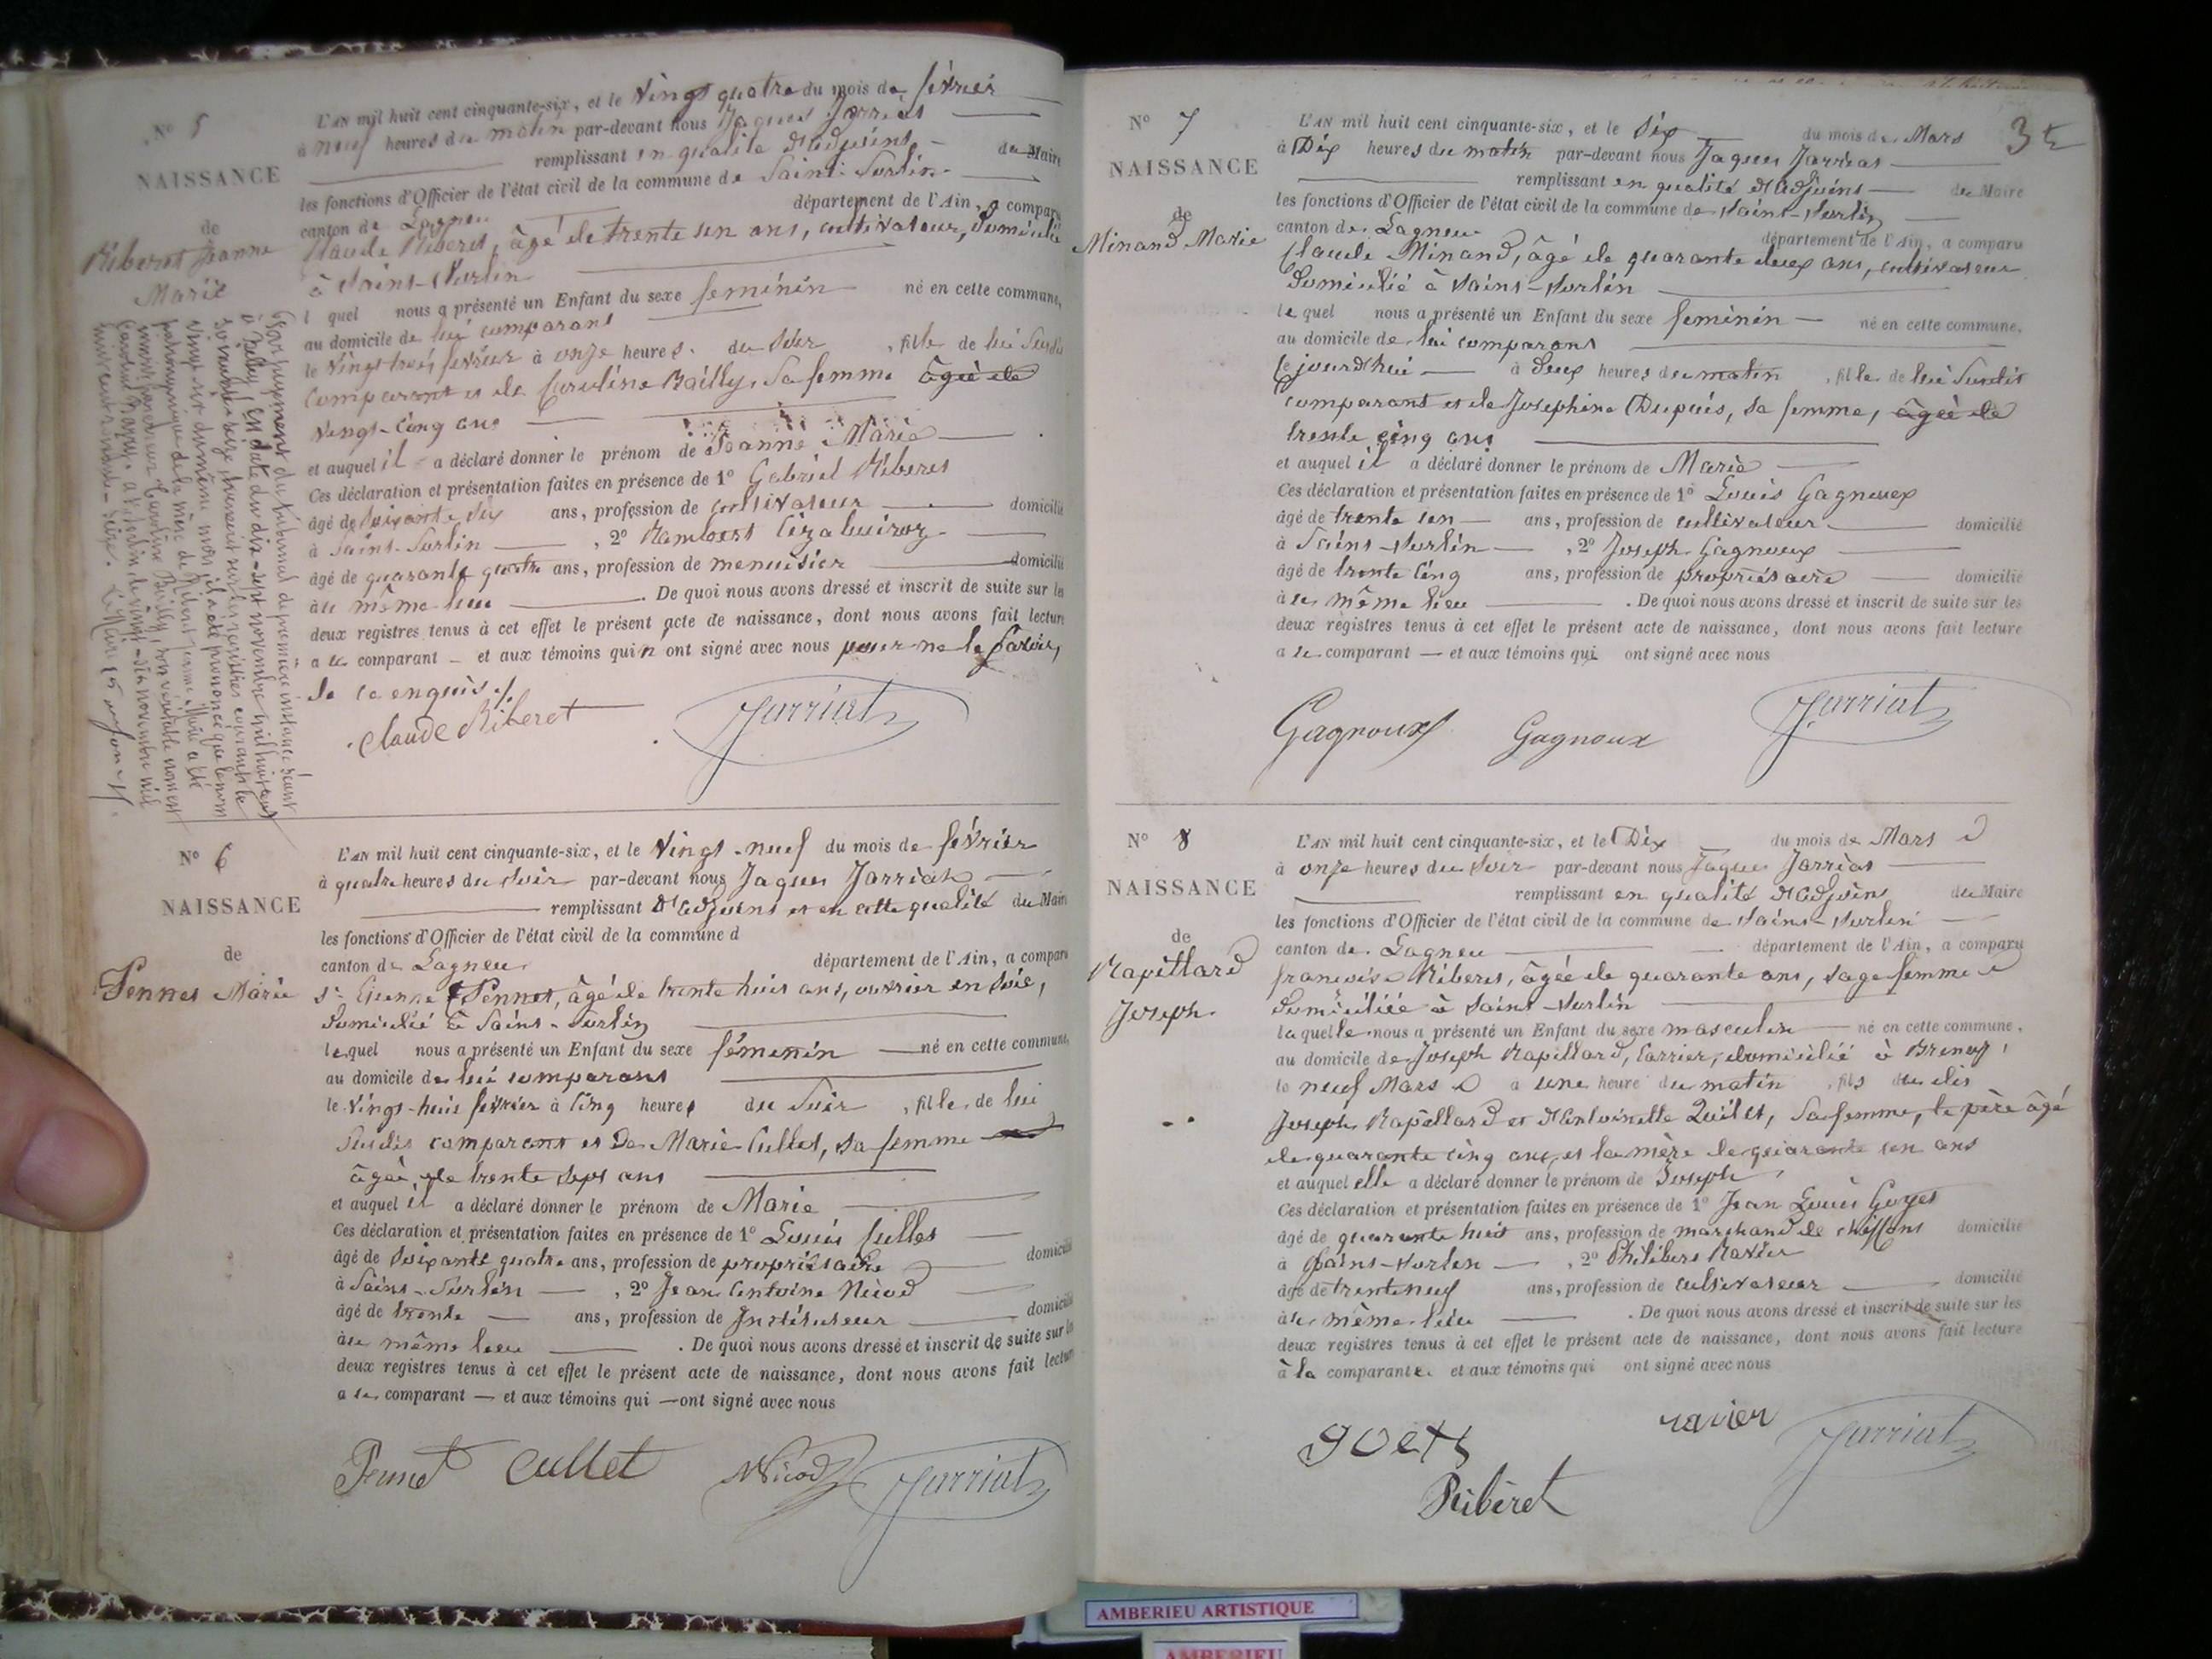 N° 5
NAISSANCE
de
Riberet Jeanne
Marie
L'AN mil huit cent cinquante-six, et le Vingt quatre du mois de février
à neuf heures du matin par-devant nous Jaques Jarriat
remplissant en qualité d'adjoint du Maire
les fonctions d'Officier de l'état civil de la commune de Saint-Sorlin
canton de Lagneu département de l'Ain, a comparu
Claude Riberet, âgé de trente un ans, cultivateur, domicilié
à Saint-Sorlin
l quel nous a présenté un Enfant du sexe feminin né en cette commune,
au domicile de lui comparant
le Vingt trois février à onze heures du soir, fille de lui susdit
comparant et de Caroline Bailly, sa femme âgée de
vingt-cinq ans
et auquel il a déclaré donner le prénom de Jeanne Marie
Ces déclaration et présentation faites en présence de 1° Gabriel Riberet
âgé de soixante six ans, profession de cultivateur domicilié
à Saint-Sorlin, 2° Rambert
âgé de quarante quatre ans, profession de menuisier domicilié
au même lieu. De quoi nous avons dressé et inscrit de suite sur les
deux registres tenus à cet effet le présent acte de naissance, dont nous avons fait lecture
a le comparant et aux témoins qui n ont signé avec nous pour ne le savoir,
de ce enquis ./.
Claude Riberet Jarriat
Par jugement du tribunal de première instance séant
à Belley en date du dix-sept novembre mil huit cent
patronymique de la mère de Riberet Jeanne Marie a été
Caroline Bailly, son véritable nom est
N° 6
NAISSANCE
de
Pennet Marie
L'AN mil huit cent cinquante-six, et le Vingt-neuf du mois de février
à quatre heures du soir par-devant nous Jaques Jarriat
remplissant d'adjoint et en cette qualité du Maire
les fonctions d'Officier de l'état civil de la commune d
canton de Lagneu département de l'Ain, a comparu
Sr Etienne Pennet, âgé de trente huit ans, ouvrier en soie,
domicilié à Saint-Sorlin
lequel nous a présenté un Enfant du sexe féminin né en cette commune,
au domicile de lui comparant
le vingt-huit février à cinq heures du soir, fille de lui
susdit comparant et de Marie Cullet, sa femme
âgée de trente sept ans
et auquel il a déclaré donner le prénom de Marie
Ces déclaration et présentation faites en présence de 1° Louis Cullet
âgé de soixante quatre ans, profession de propriétaire domicilié
à Saint-Sorlin, 2° Jean Antoine Nicod
âgé de trente ans, profession de Instituteur domicilié
au même lieu. De quoi nous avons dressé et inscrit de suite sur les
deux registres tenus à cet effet le présent acte de naissance, dont nous avons fait lecture
a le comparant et aux témoins qui ont signé avec nous
Pennet Cullet Nicod Jarriat
3
N° 7
NAISSANCE
de
Minand Marie
L'AN mil huit cent cinquante-six, et le six du mois de Mars
à Dix heures du matin par-devant nous Jaques Jarriat
remplissant en qualité d'adjoint du Maire
les fonctions d'Officier de l'état civil de la commune de Saint-Sorlin
canton de Lagneu département de l'Ain, a comparu
Claude Minand, âgé de quarante deux ans, cultivateur
domicilié à Saint-Sorlin
le quel nous a présenté un Enfant du sexe feminin né en cette commune,
au domicile de lui comparant
cejourd'hui à deux heures du matin, fille de lui susdit
comparant et de Josephine Dupuis, sa femme, âgée de
trente cinq ans
et auquel il a déclaré donner le prénom de Marie
Ces déclaration et présentation faites en présence de 1° Louis Gagnoux
âgé de trente un ans, profession de cultivateur domicilié
à Saint-Sorlin, 2° Joseph Gagnoux
âgé de trente cinq ans, profession de propriétaire domicilié
au même lieu. De quoi nous avons dressé et inscrit de suite sur les
deux registres tenus à cet effet le présent acte de naissance, dont nous avons fait lecture
a le comparant et aux témoins qui ont signé avec nous
Gagnoux Gagnoux Jarriat
N° 8
NAISSANCE
de
Rapillard
Joseph
L'AN mil huit cent cinquante-six, et le Dix du mois de Mars
à onze heures du soir par-devant nous Jaques Jarriat
remplissant en qualité d'adjoint du Maire
les fonctions d'Officier de l'état civil de la commune de Saint-Sorlin
canton de Lagneu département de l'Ain, a comparu
françoise Riberet, âgée de quarante ans, sage femme
domiciliée à Saint-Sorlin
laquelle nous a présenté un Enfant du sexe masculin né en cette commune,
au domicile de Joseph Rapillard, Carrier, domicilié à
le neuf Mars à une heure du matin, fils du dit
Joseph Rapillard et d'Antoinette Quilet, sa femme, le père âgé
de quarante cinq ans, et la mère de quarante un ans
et auquel elle a déclaré donner le prénom de Joseph
Ces déclaration et présentation faites en présence de 1° Jean Louis Goyet
âgé de quarante huit ans, profession de marchand de chiffons domicilié
à Saint-Sorlin, 2° Philibert Ravier
âgé de trente neuf ans, profession de cultivateur domicilié
au même lieu. De quoi nous avons dressé et inscrit de suite sur les
deux registres tenus à cet effet le présent acte de naissance, dont nous avons fait lecture
à la comparante et aux témoins qui ont signé avec nous
goets ravier Jarriat
Riberet
AMBERIEU ARTISTIQUE
AMBERIEU